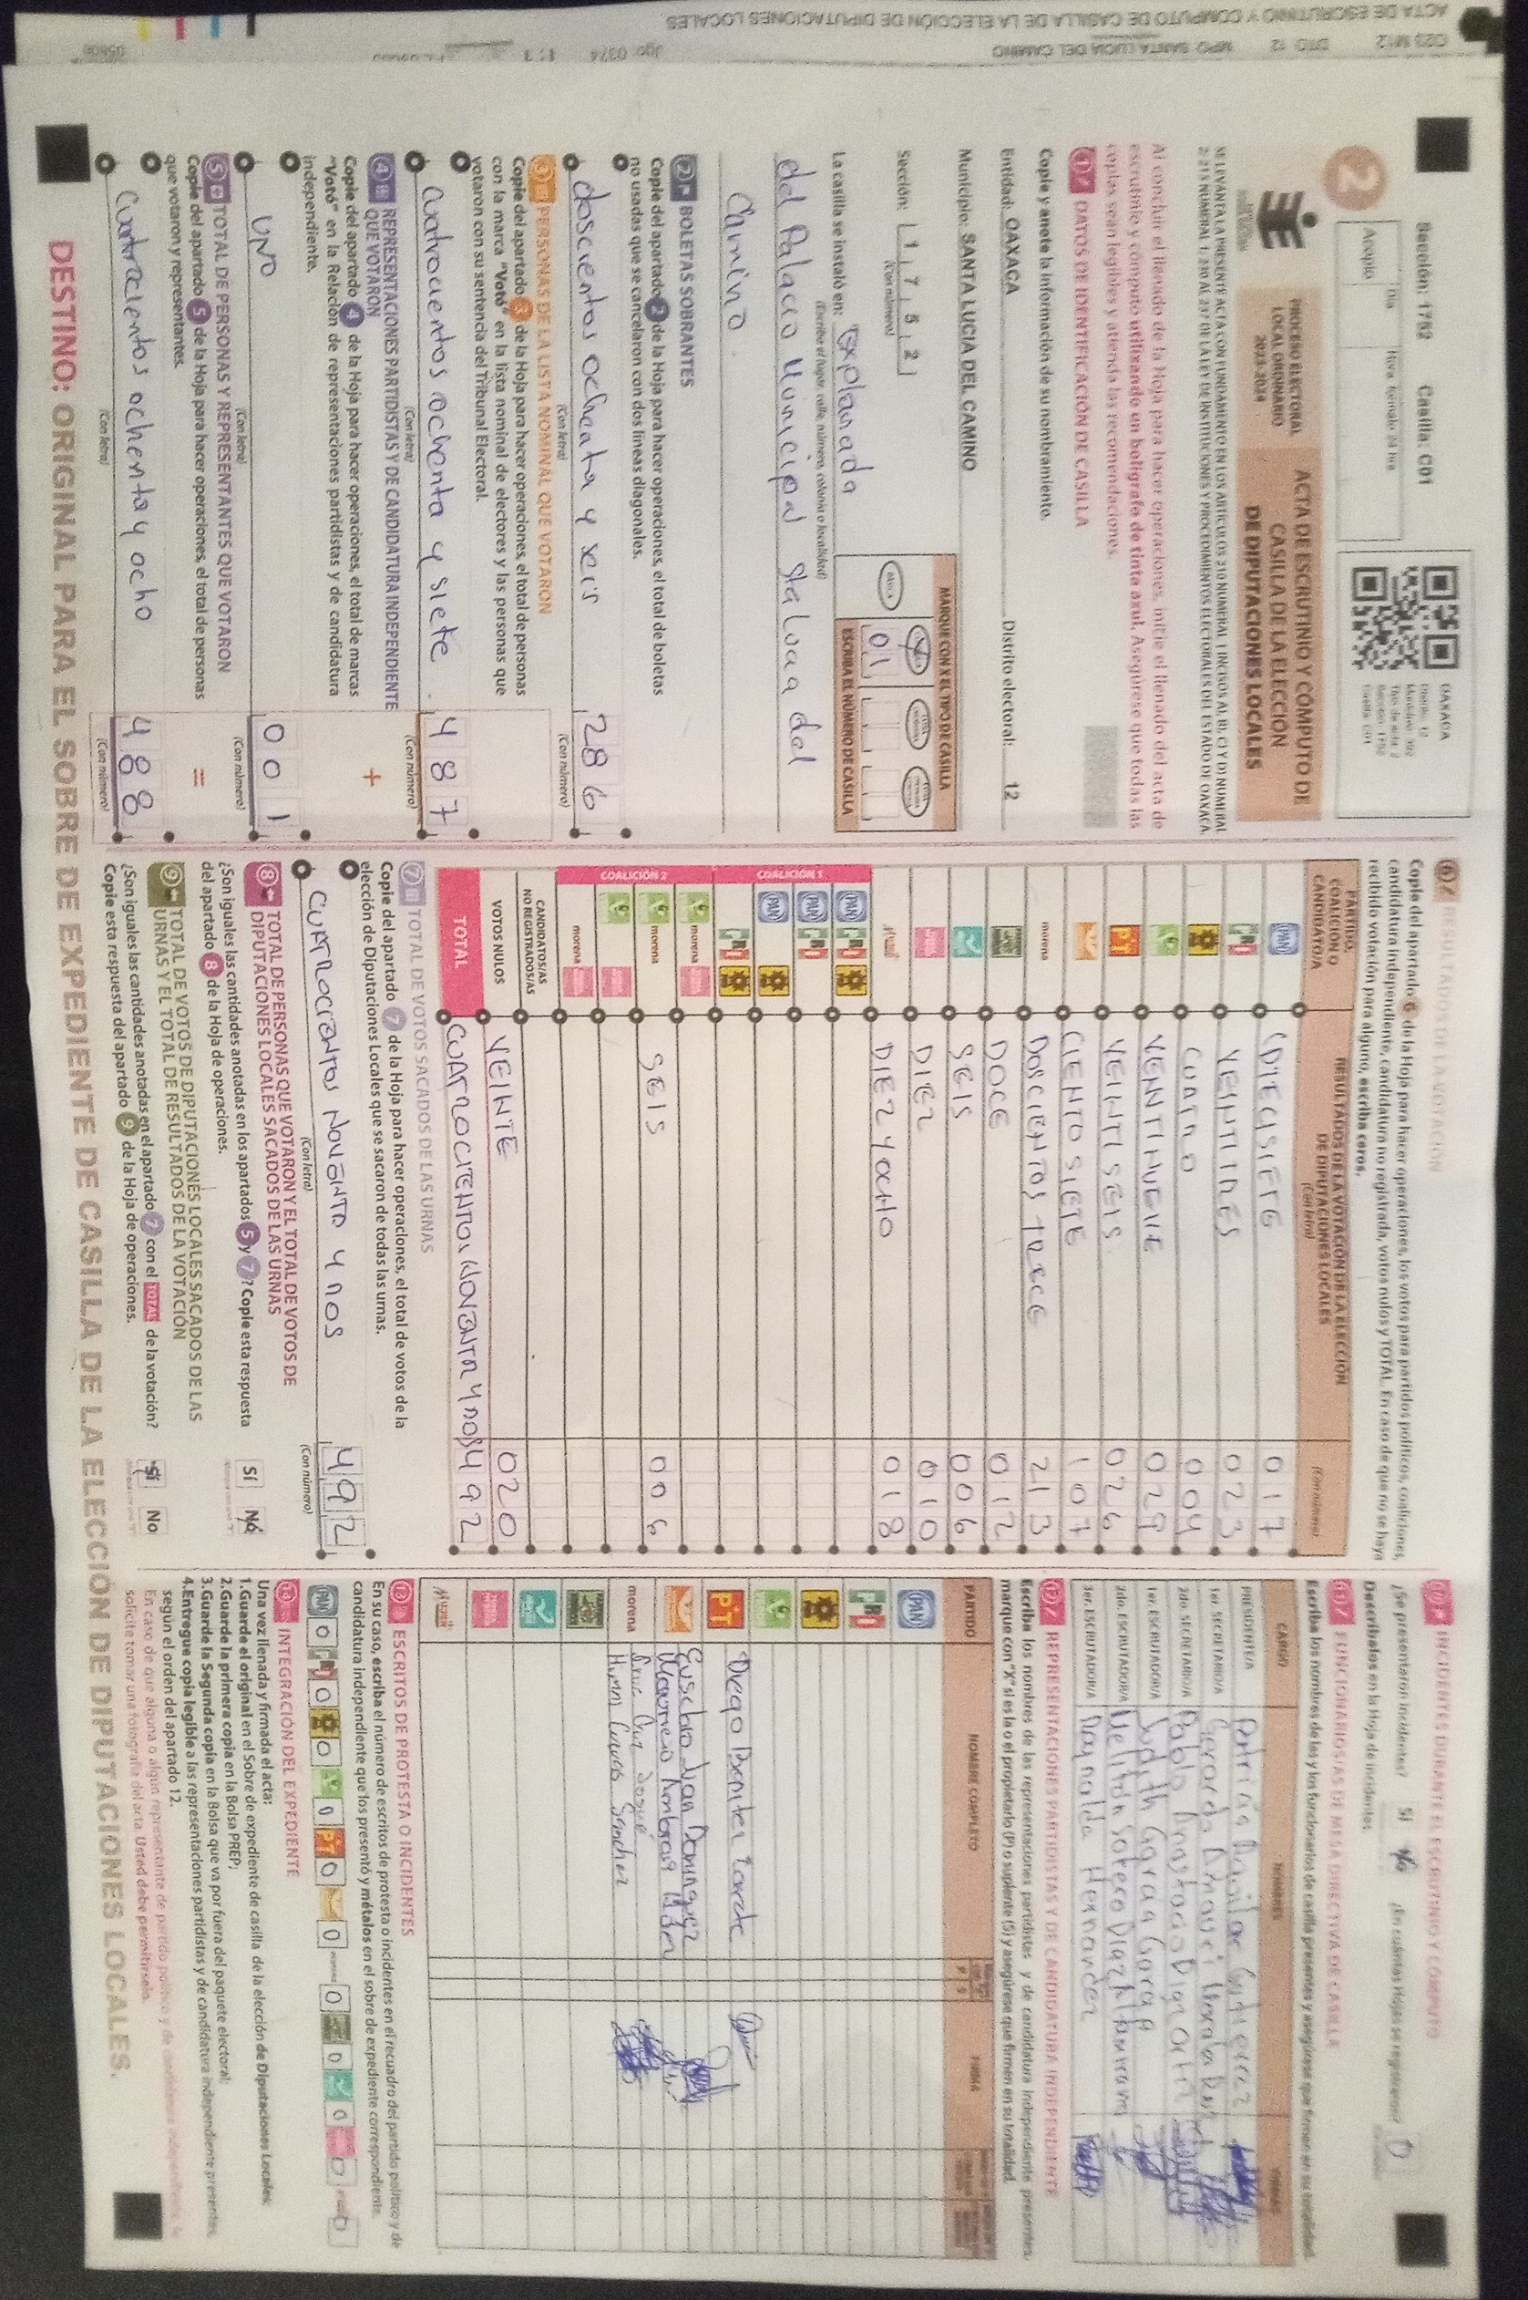 Sección: 1752 Casilla: C01
Día Hora formato 24 hrs
Acopio
OAXACA
2
PROCESO ELECTORAL
LOCAL ORDINARIO
2023-2024
ACTA DE ESCRUTINIO Y CÓMPUTO DE
CASILLA DE LA ELECCIÓN
DE DIPUTACIONES LOCALES
Al concluir el llenado de la Hoja para hacer operaciones, inicie el llenado del acta de
escrutinio y cómputo utilizando un bolígrafo de tinta azul. Asegúrese que todas las
copias sean legibles y atienda las recomendaciones.
1 DATOS DE IDENTIFICACIÓN DE CASILLA
Copie y anote la información de su nombramiento.
Entidad: OAXACA Distrito electoral: 12
Municipio: SANTA LUCIA DEL CAMINO
Sección: 1 7 5 2
(Con número)
MARQUE CON X EL TIPO DE CASILLA
ESCRIBA EL NÚMERO DE CASILLA
01
La casilla se instaló en: Explanada
(Escriba el lugar, calle, número, colonia o localidad)
del Palacio Municipal sta Lucia del
Camino.
2 BOLETAS SOBRANTES
Copie del apartado 2 de la Hoja para hacer operaciones, el total de boletas
no usadas que se cancelaron con dos líneas diagonales.
doscientos ochenta y seis 286
(Con letra) (Con número)
3 PERSONAS DE LA LISTA NOMINAL QUE VOTARON
Copie del apartado 3 de la Hoja para hacer operaciones, el total de personas
con la marca "Votó" en la lista nominal de electores y las personas que
votaron con su sentencia del Tribunal Electoral.
cuatrocientos ochenta y siete. 487
(Con letra) (Con número)
4 REPRESENTACIONES PARTIDISTAS Y DE CANDIDATURA INDEPENDIENTE
QUE VOTARON
Copie del apartado 4 de la Hoja para hacer operaciones, el total de marcas
"Votó" en la Relación de representaciones partidistas y de candidatura
independiente.
+
UNO 001
(Con letra) (Con número)
5 TOTAL DE PERSONAS Y REPRESENTANTES QUE VOTARON
Copie del apartado 5 de la Hoja para hacer operaciones, el total de personas
que votaron y representantes.
=
Cuatrocientos ochenta y ocho 488
(Con letra) (Con número)
6 RESULTADOS DE LA VOTACIÓN
Copie del apartado 6 de la Hoja para hacer operaciones, los votos para partidos políticos, coaliciones,
candidatura independiente, candidatura no registrada, votos nulos y TOTAL. En caso de que no se haya
recibido votación para alguno, escriba ceros.
PARTIDO,
COALICIÓN O
CANDIDATO/A
RESULTADOS DE LA VOTACIÓN DE LA ELECCIÓN
DE DIPUTACIONES LOCALES
(Con letra) (Con número)
PAN DIECISIETE 017
PRI VEINTITRES 023
CUATRO 004
VEINTINUEVE 029
PT VEINTISEIS. 026
CIENTO SIETE 107
morena DOSCIENTOS TRECE 213
DOCE 012
SEIS 006
DIEZ 010
DIEZ Y OCHO 018
COALICIÓN 1
PAN PRI
PAN PRI
PAN
PRI
COALICIÓN 2
morena
morena SEIS 006
morena
CANDIDATOS/AS
NO REGISTRADOS/AS
VOTOS NULOS VEINTE 020
TOTAL CUATROCIENTOS NOVENTA Y DOS 492
7 TOTAL DE VOTOS SACADOS DE LAS URNAS
Copie del apartado 7 de la Hoja para hacer operaciones, el total de votos de la
elección de Diputaciones Locales que se sacaron de todas las urnas.
CUATROCIENTOS NOVENTA Y DOS 492
(Con letra) (Con número)
8 TOTAL DE PERSONAS QUE VOTARON Y EL TOTAL DE VOTOS DE
DIPUTACIONES LOCALES SACADOS DE LAS URNAS
¿Son iguales las cantidades anotadas en los apartados 5 y 7? Copie esta respuesta
del apartado 8 de la Hoja de operaciones.
Sí No
9 TOTAL DE VOTOS DE DIPUTACIONES LOCALES SACADOS DE LAS
URNAS Y EL TOTAL DE RESULTADOS DE LA VOTACIÓN
¿Son iguales las cantidades anotadas en el apartado 7 con el TOTAL de la votación?
Copie esta respuesta del apartado 9 de la Hoja de operaciones.
Sí No
10 INCIDENTES DURANTE EL ESCRUTINIO Y CÓMPUTO
¿Se presentaron incidentes? Sí No ¿En cuántas Hojas se registraron? 0
Descríbalos en la Hoja de incidentes.
11 FUNCIONARIOS/AS DE MESA DIRECTIVA DE CASILLA
Escriba los nombres de las y los funcionarios de casilla presentes y asegúrese que firmen en su totalidad.
CARGO NOMBRES FIRMAS
PRESIDENTE/A Patricia Aguilar Gutierrez
1er. SECRETARIO/A Gerardo
2do. SECRETARIO/A Pablo Anastacio Diaz Ortiz
1er. ESCRUTADOR/A Judith Garcia Garcia
2do. ESCRUTADOR/A Melitón Sotero Diaz
3er. ESCRUTADOR/A Raynalda Hernandez
12 REPRESENTACIONES PARTIDISTAS Y DE CANDIDATURA INDEPENDIENTE
Escriba los nombres de las representaciones partidistas y de candidatura independiente presentes,
marque con "X" si es la o el propietario (P) o suplente (S) y asegúrese que firmen en su totalidad.
PARTIDO NOMBRE COMPLETO P S FIRMA
PAN
PRI
PT Diego Benitez Zarate
Eusebio Juan Dominguez
morena
13 ESCRITOS DE PROTESTA O INCIDENTES
En su caso, escriba el número de escritos de protesta o incidentes en el recuadro del partido político y de
candidatura independiente que los presentó y métalos en el sobre de expediente correspondiente.
PAN 0 PRI 0 0 0 PT 0 0 morena 0 0 0 0 0
14 INTEGRACIÓN DEL EXPEDIENTE
Una vez llenada y firmada el acta:
1.Guarde el original en el Sobre de expediente de casilla de la elección de Diputaciones Locales;
2.Guarde la primera copia en la Bolsa PREP;
3.Guarde la Segunda copia en la Bolsa que va por fuera del paquete electoral;
4.Entregue copia legible a las representaciones partidistas y de candidatura independiente presentes,
según el orden del apartado 12.
En caso de que alguna o algún representante de partido político y de candidatura independiente, le
solicite tomar una fotografía del acta. Usted debe permitírselo.
DESTINO: ORIGINAL PARA EL SOBRE DE EXPEDIENTE DE CASILLA DE LA ELECCIÓN DE DIPUTACIONES LOCALES.
ACTA DE ESCRUTINIO Y CÓMPUTO DE CASILLA DE LA ELECCIÓN DE DIPUTACIONES LOCALES
DTO 12 MPO SANTA LUCIA DEL CAMINO Jgo: 0374